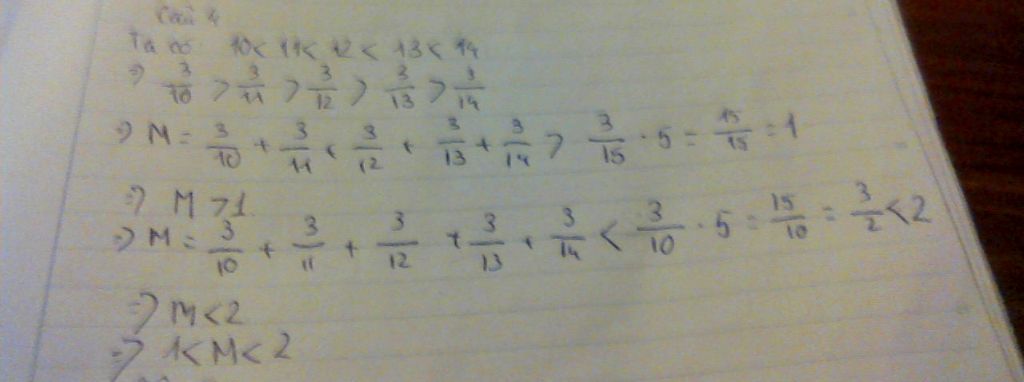 Câu 4
Ta có: 10 < 11 < 12 < 13 < 14
=> 3/10 > 3/11 > 3/12 > 3/13 > 3/14
=> M = 3/10 + 3/11 + 3/12 + 3/13 + 3/14 > 3/15 . 5 = 15/15 = 1
=> M > 1
=> M = 3/10 + 3/11 + 3/12 + 3/13 + 3/14 < 3/10 . 5 = 15/10 = 3/2 < 2
=> M < 2
=> 1 < M < 2